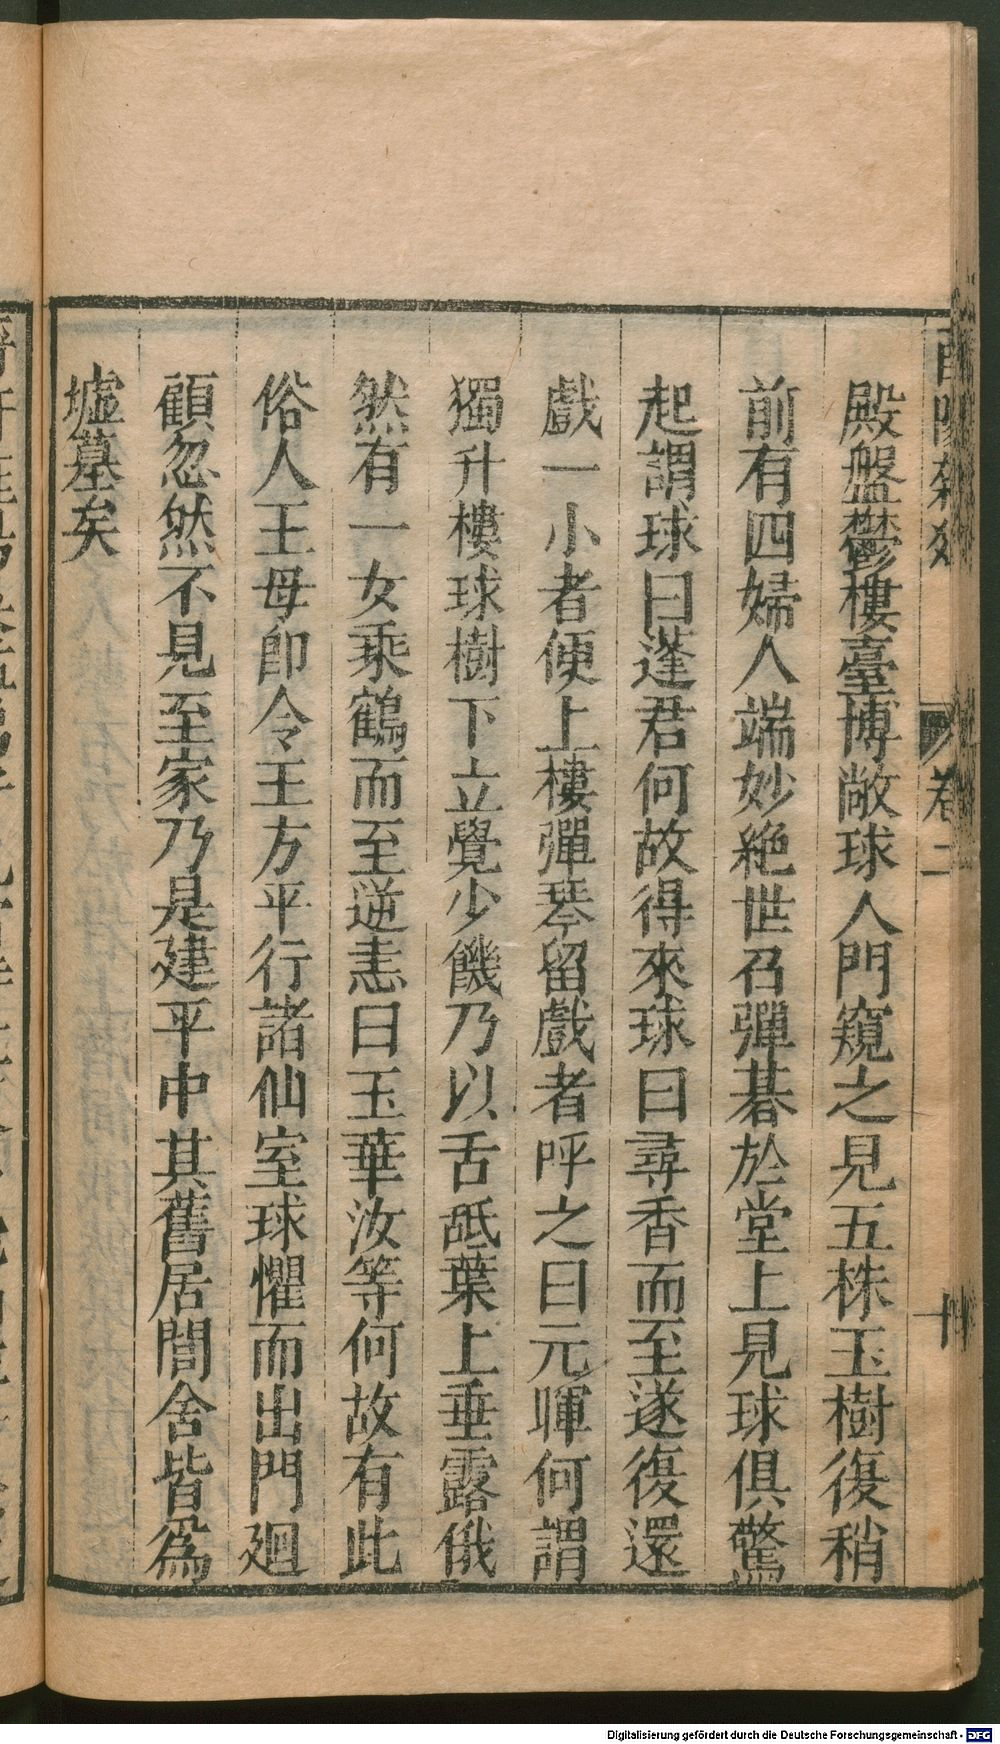 殿盤鬱樓臺博敞球入門窺之見五株玉樹復稍
前有四婦人端妙絶世召彈碁於堂上見球俱驚
起謂球曰蓬君何故得來球曰尋香而至遂復還
戲一小者便上樓彈琴留戲者呼之曰元暉何謂
獨升樓球樹下立覺少饑乃以舌䑛葉上垂露俄
然有一女乘鶴而至逆恚曰玉華汝等何故有此
俗人王母卽令王方平行諸仙室球懼而出門廻
顧忽然不見至家乃是建平中其舊居閭舍皆爲
墟墓矣
酉陽雜俎 卷二 十
Digitalisierung gefördert durch die Deutsche Forschungsgemeinschaft - DFG